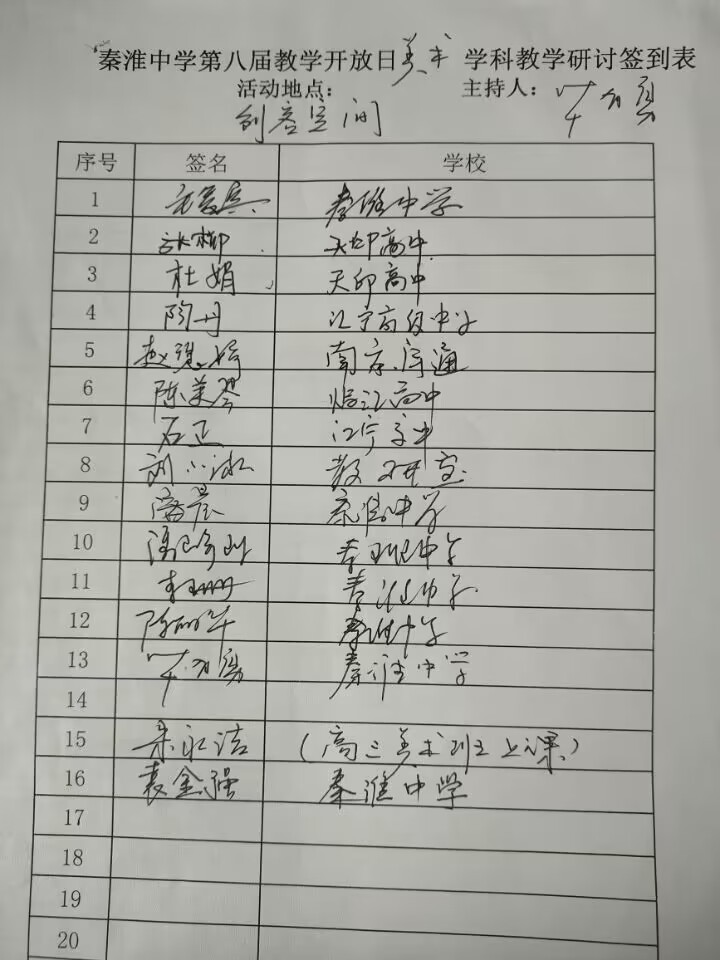 秦淮中学第八届教学开放日美术学科教学研讨签到表
活动地点： 主持人：
创客空间
序号 签名 学校
1 秦淮中学
2 张柳 天印高中
3 杜娟 天印高中
4 陶丹 江宁高级中学
5 赵 南京
6 陈美琴 临江高中
7 石正 江宁高中
8 刘小冰 教研室
9 潘晨 秦淮中学
10 秦淮中学
11 李珊珊 秦淮中学
12 陈丽华 秦淮中学
13 秦淮中学
14
15 朱永洁 （高三美术班上课）
16 袁金强 秦淮中学
17
18
19
20